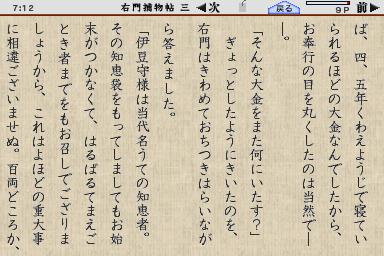 7:12
右門捕物帖 三
◀次
戻る
9P
前▶
ば、四、五年くわえようじで寝てい
られるほどの大金なんでしたから、
お奉行の目を丸くしたのは当然で―
―。
「そんな大金をまた何にいたす?」
ぎょっとしたようにきいたのを、
右門はきわめておちつきはらいなが
ら答えました。
「伊豆守様は当代名うての知恵者。
その知恵袋をもってしましてもお始
末がつかなくて、はるばるてまえご
とき者までをもお召しでござりま
しょうから、これはよほどの重大事
に相違ございませぬ。百両どころか、